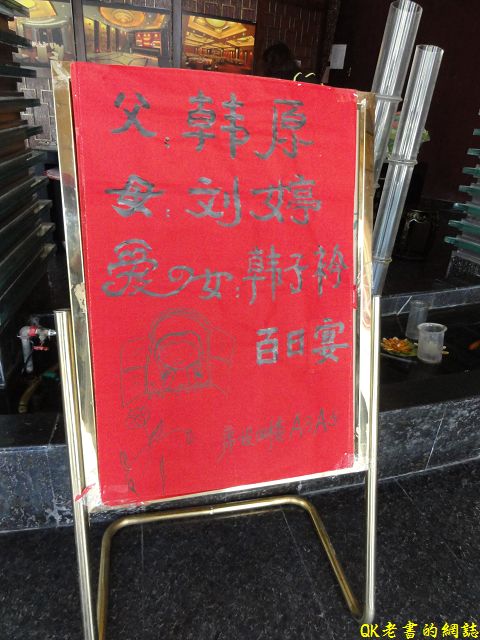 父:韩原
母:刘婷
爱の女:韩子衿
百日宴
QK老書的網誌